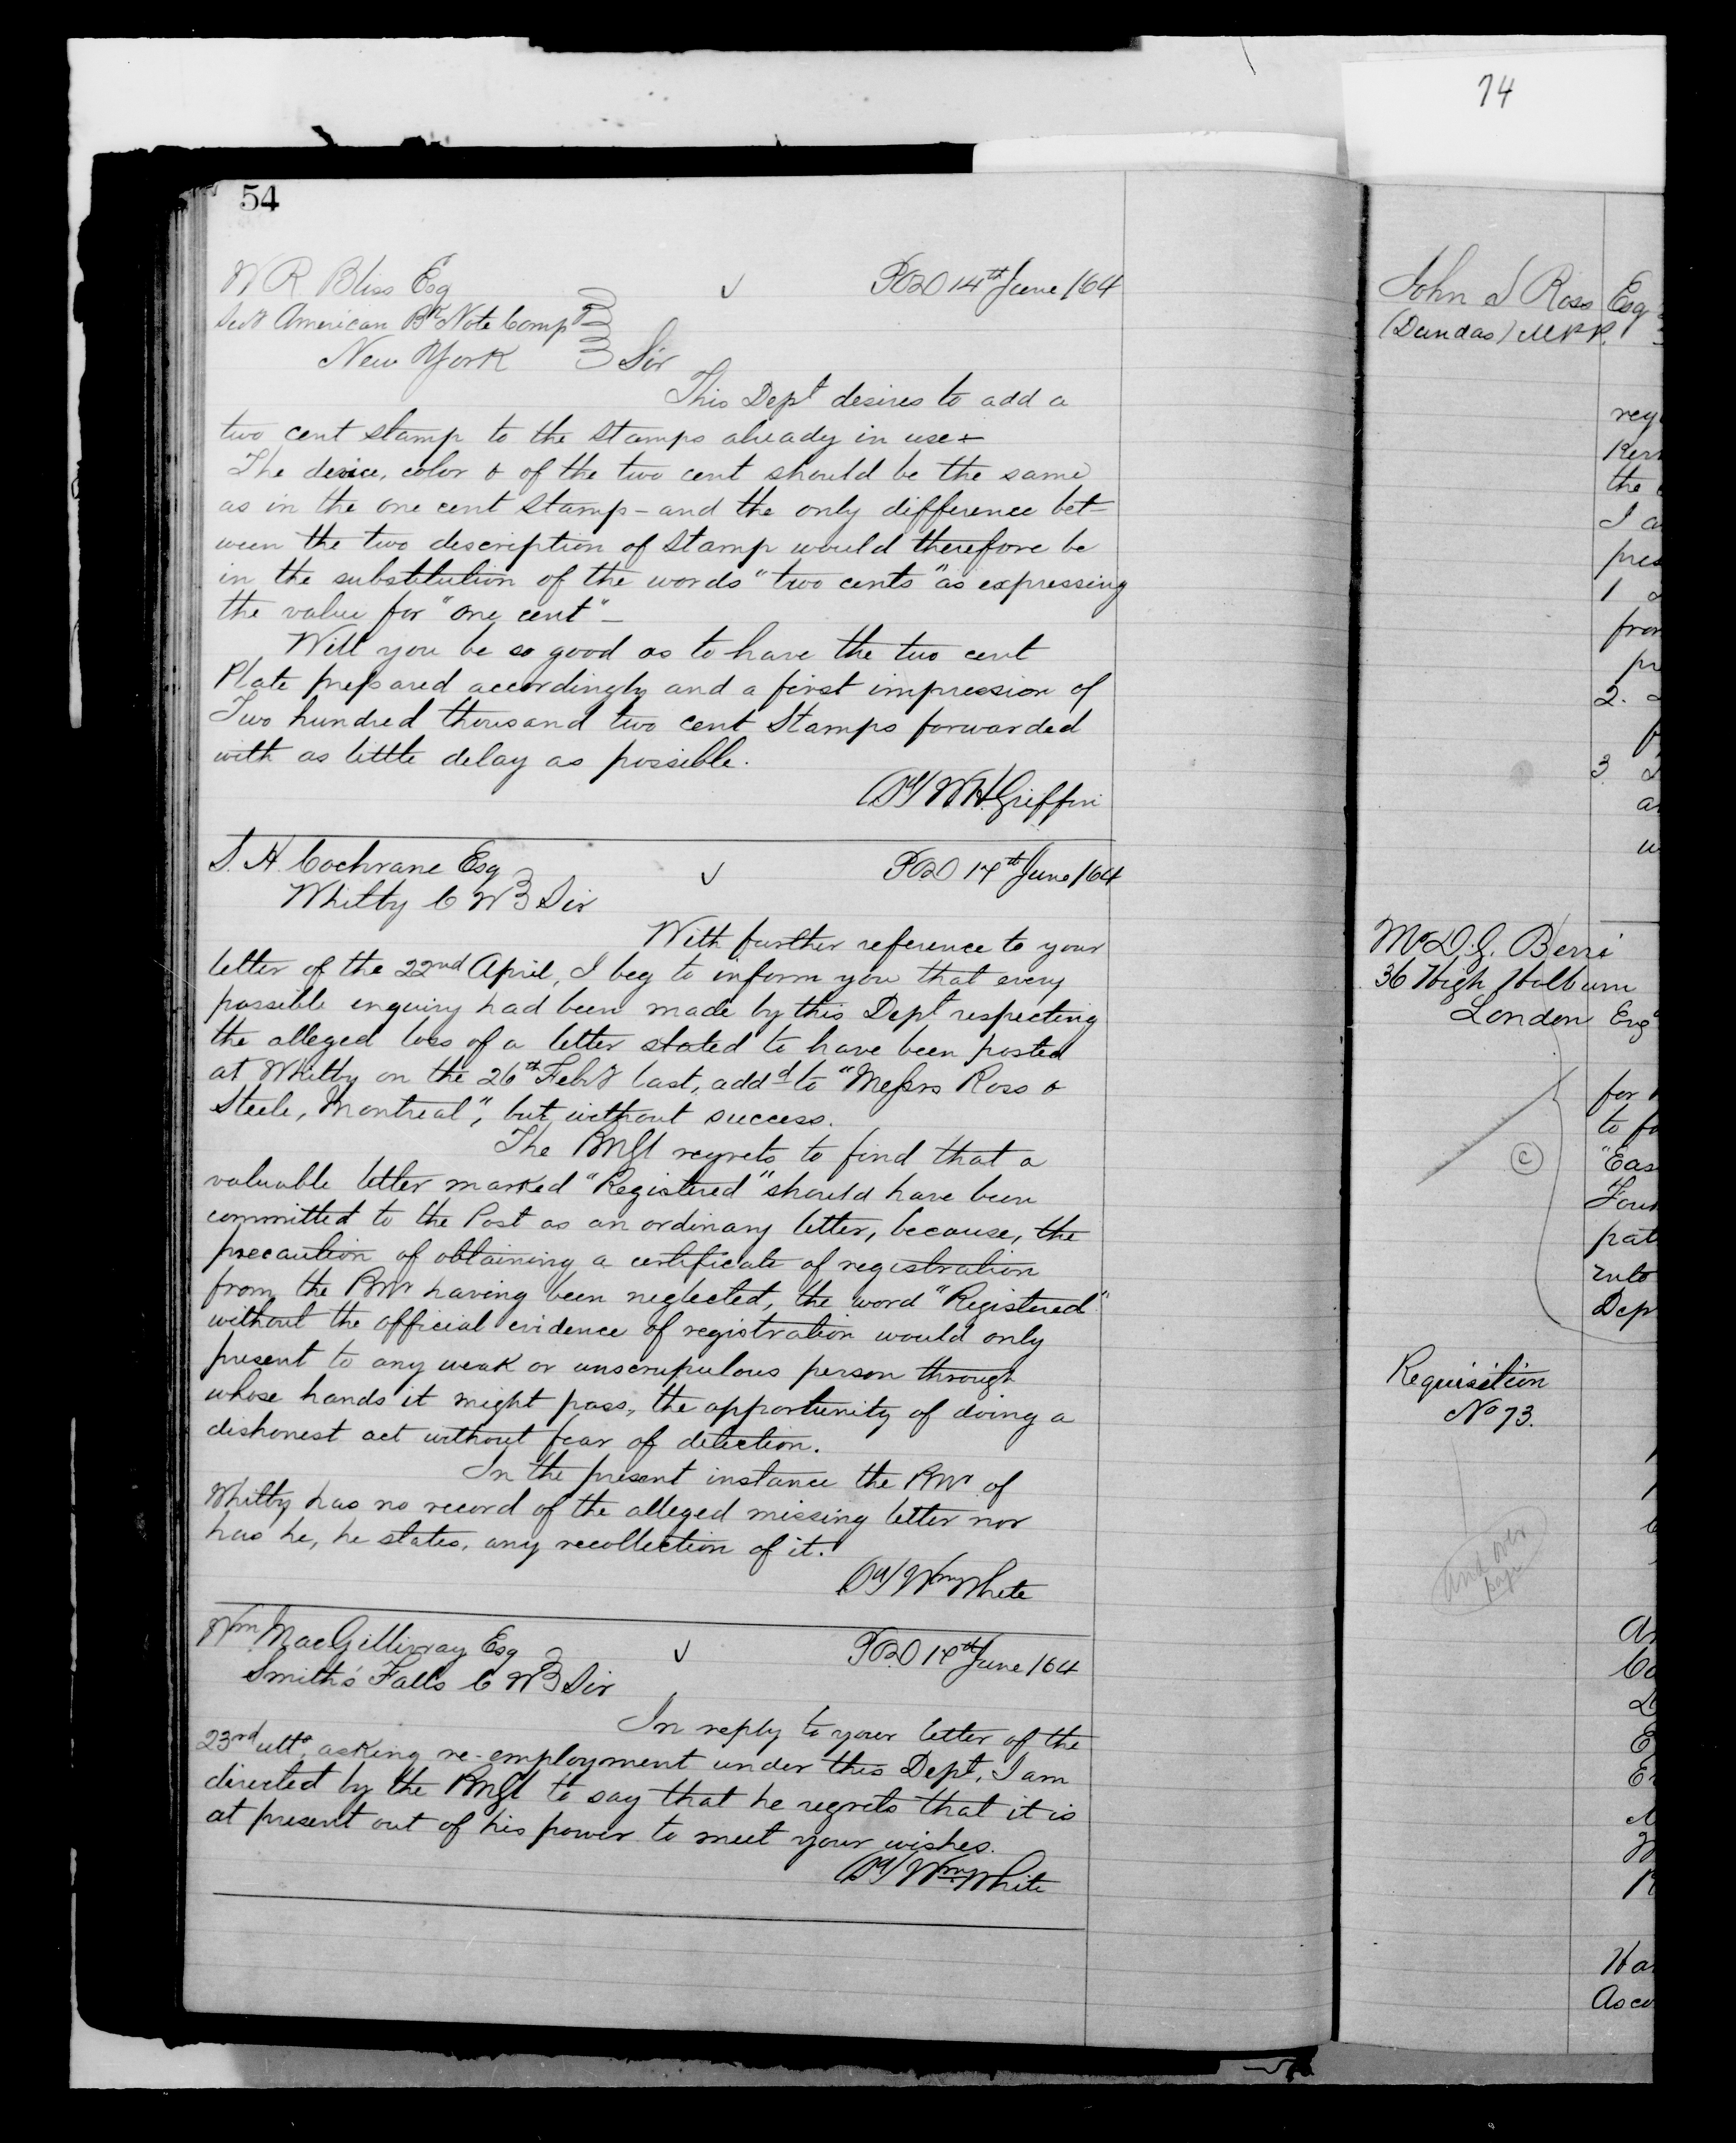 74
54
W R Bliss Esq ✓ POD 14th June /64
Secy American Bk Note Compy
New York Sir
This Dept desires to add a
two cent stamp to the stamps already in use +
The device, color & of the two cent should be the same
as in the one cent stamp – and the only difference bet-
ween the two description of stamp would therefore be
in the substitution of the words "two cents" as expressing
the value for "one cent" –
Will you be so good as to have the two cent
Plate prepared accordingly and a first impression of
Two hundred thousand two cent Stamps forwarded
with as little delay as possible.
W H Griffin
S. H. Cochrane Esq ✓ POD 14th June /64
Whitby C W Sir
With further reference to your
letter of the 22nd April, I beg to inform you that every
possible enquiry had been made by this Dept respecting
the alleged loss of a letter stated to have been posted
at Whitby on the 26th Feby last, addd to "Messrs Ross &
Steele, Montreal", but without success.
The PMGl regrets to find that a
valuable letter marked "Registered" should have been
committed to the Post as an ordinary letter, because, the
precaution of obtaining a certificate of registration
from the PMr having been neglected, the word "Registered"
without the official evidence of registration would only
present to any weak or unscrupulous person through
whose hands it might pass, the opportunity of doing a
dishonest act without fear of detection.
In the present instance the PMr of
Whitby has no record of the alleged missing letter nor
has he, he states, any recollection of it.
Wm White
Wm MacGillivray Esq ✓ POD 14th June /64
Smith's Falls C W Sir
In reply to your letter of the
23rd ulto, asking re-employment under this Dept, I am
directed by the PMGl to say that he regrets that it is
at present out of his power to meet your wishes.
Wm White
John S Ross Esq
(Dundas) MPP.
the
I
1
2.
3
Mr D. G. Berri
36 High Holburn
London Eng
for
to
"Eas
pat
into
Dep
C
Requisition
No 73.
and over
page